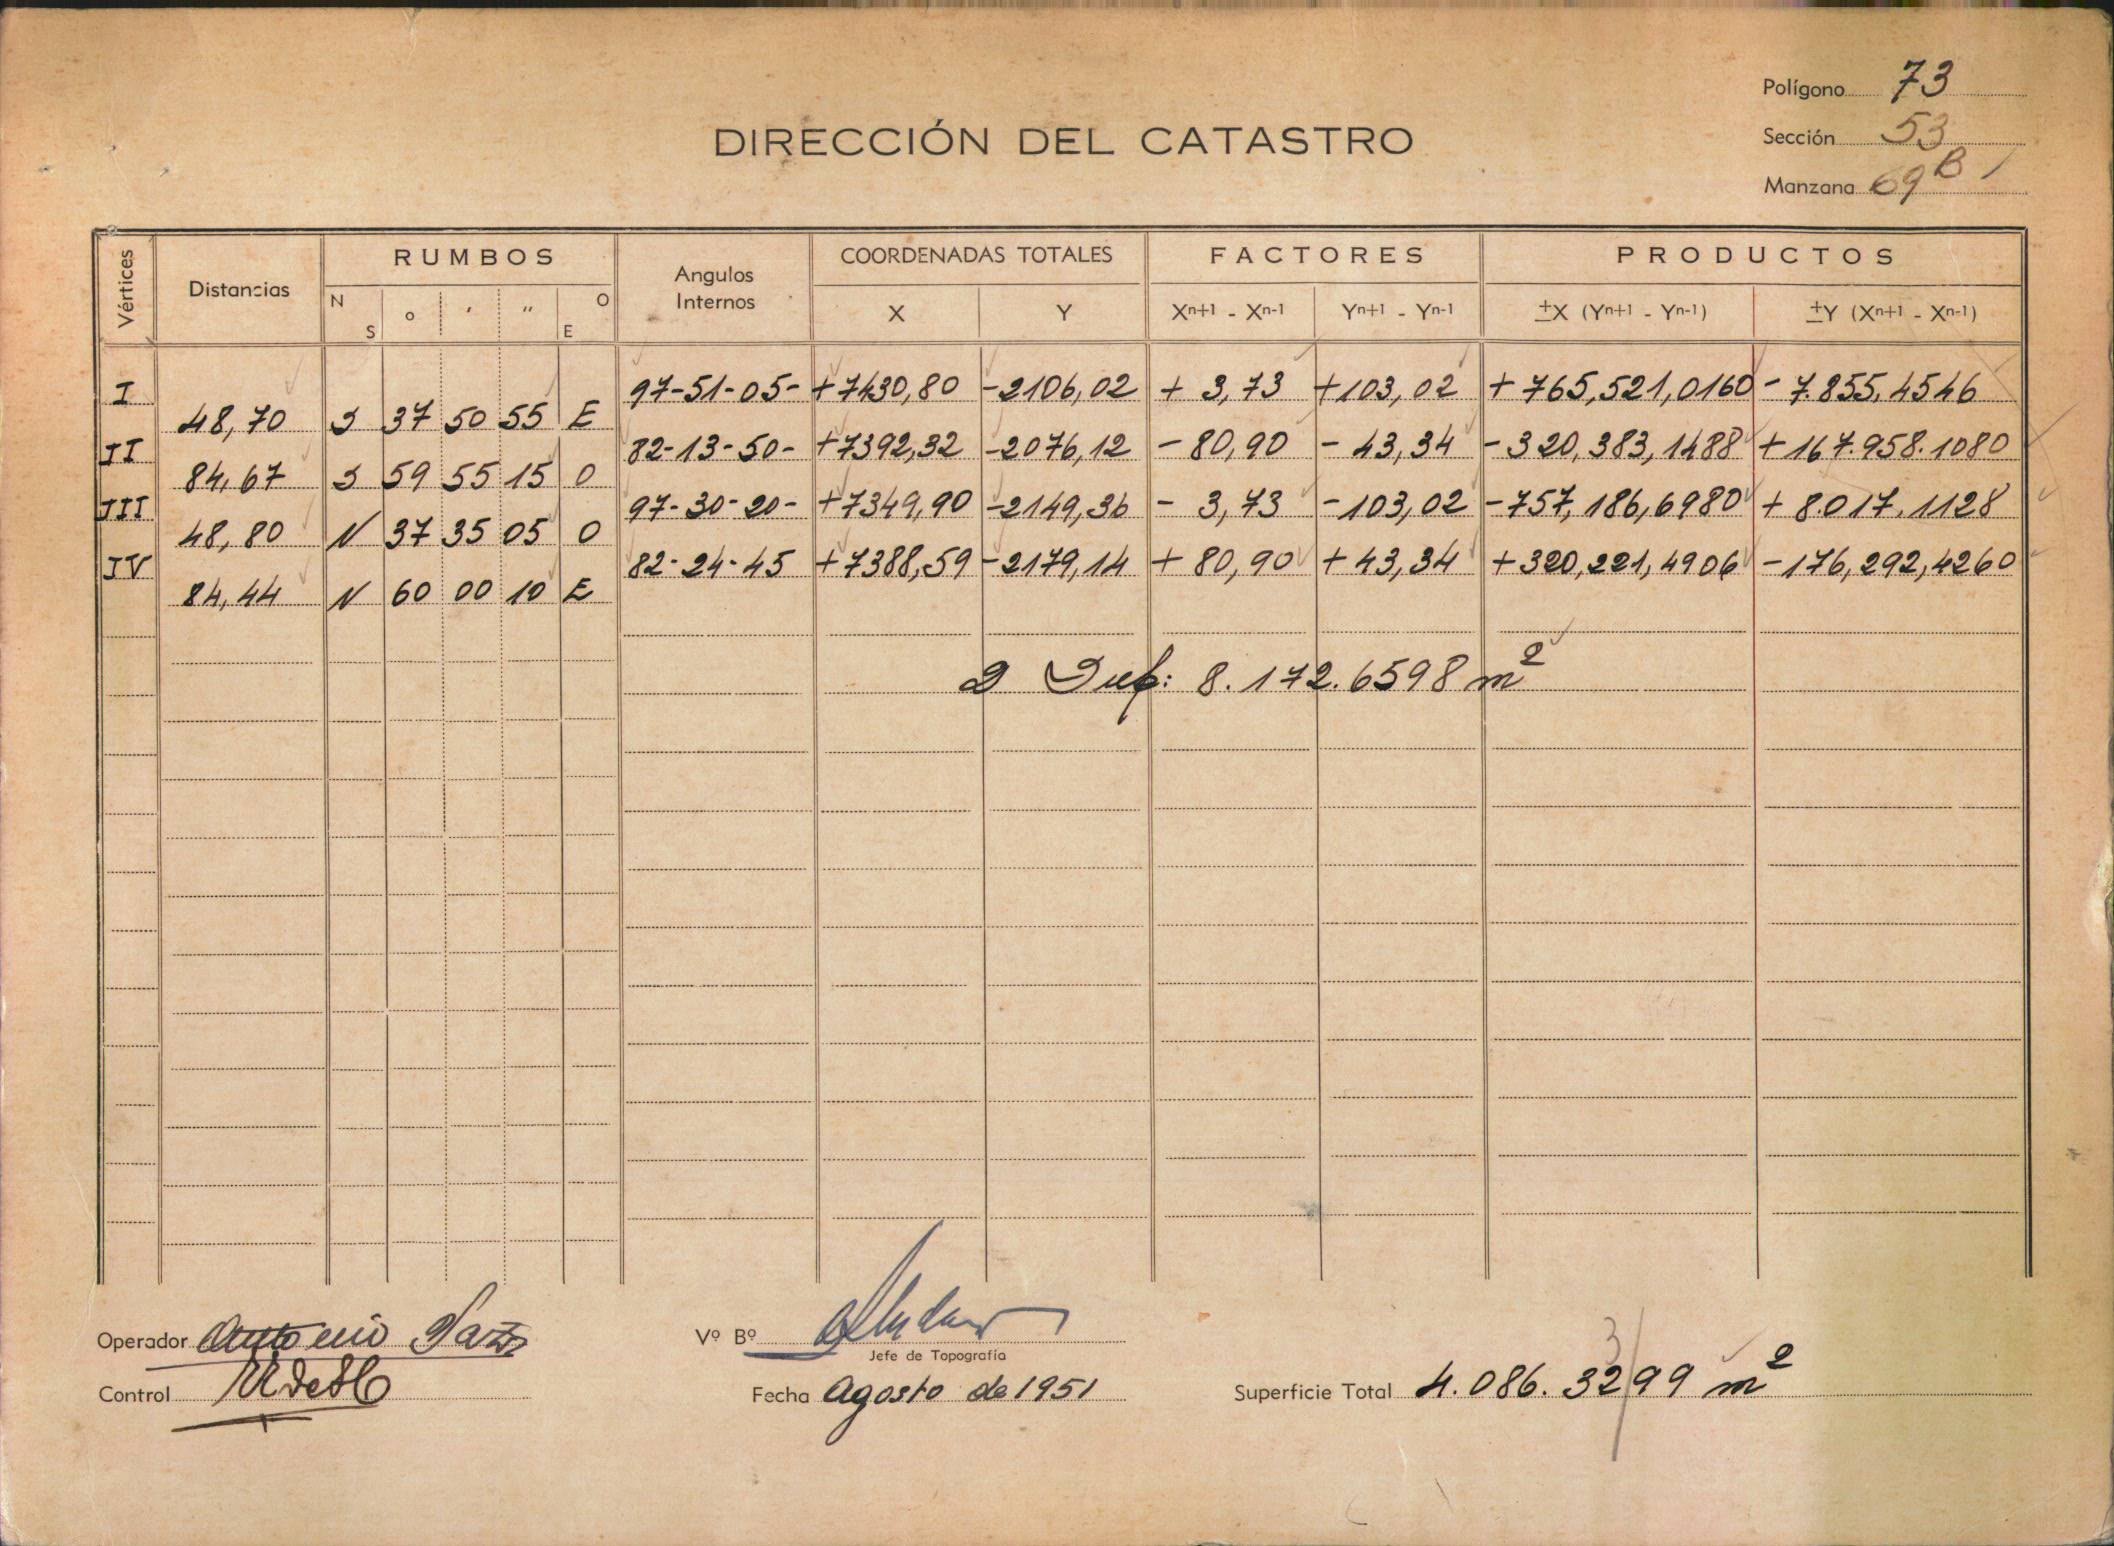 Polígono 73
DIRECCIÓN DEL CATASTRO
Sección 53
Manzana 69 B
Vértices Distancias RUMBOS Angulos Internos COORDENADAS TOTALES FACTORES PRODUCTOS
N S o ′ ″ O E X Y Xn+1 - Xn-1 Yn+1 - Yn-1 ±X (Yn+1 - Yn-1) ±Y (Xn+1 - Xn-1)
I 97-51-05- +7430,80 -2106,02 + 3,73 +103,02 +765,521,0160 - 7.855,4546
48,70 S 37 50 55 E
II 82-13-50- +7392,32 -2076,12 - 80,90 - 43,34 -320,383,1488 + 167.958.1080
84,67 S 59 55 15 O
III 97-30-20- +7349,90 -2149,36 - 3,73 -103,02 -757,186,6980 + 8.017.1128
48,80 N 37 35 05 O
IV 82-24-45 +7388,59 -2179,14 + 80,90 + 43,34 +320,221,4906 -176,292,4260
84,44 N 60 00 10 E
2 Sup: 8.172.6598 m²
Operador Antonio
Vº Bº
Jefe de Topografía
Control
Fecha Agosto de 1951
3
Superficie Total 4.086.3299 m²